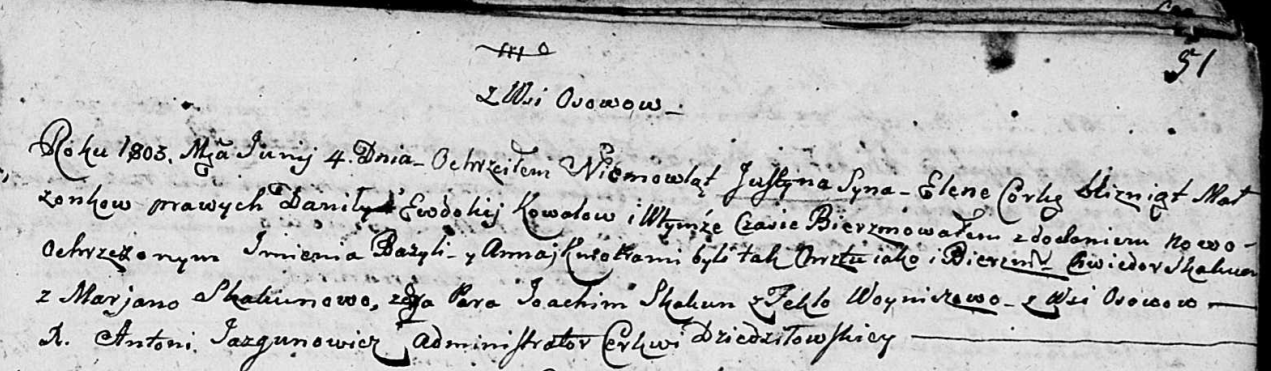 51
z Wsi Osowow
Roku 1803. Mca Junij 4. Dnia Ochrzciłem Niemowląt Justyna Syna Elene Corkę blizniąt Mał
zonkow prawych Daniły Ewdokij Kowalow i Wtymże Czasie Bierzmowałem z dodaniem nowo-
ochrzczonym Imienia Bazyli y Anna Kumotrami byli tak Chrztu iako i Bierzm: Chwiedor Skakun
z Marjano Skakunowo, 2ga Para Joachim Skakun z Teklo Woyniczowo z Wsi Osowow
X. Antoni Jazgunowicz Administrator Cerkwi Dziedziłowskiey